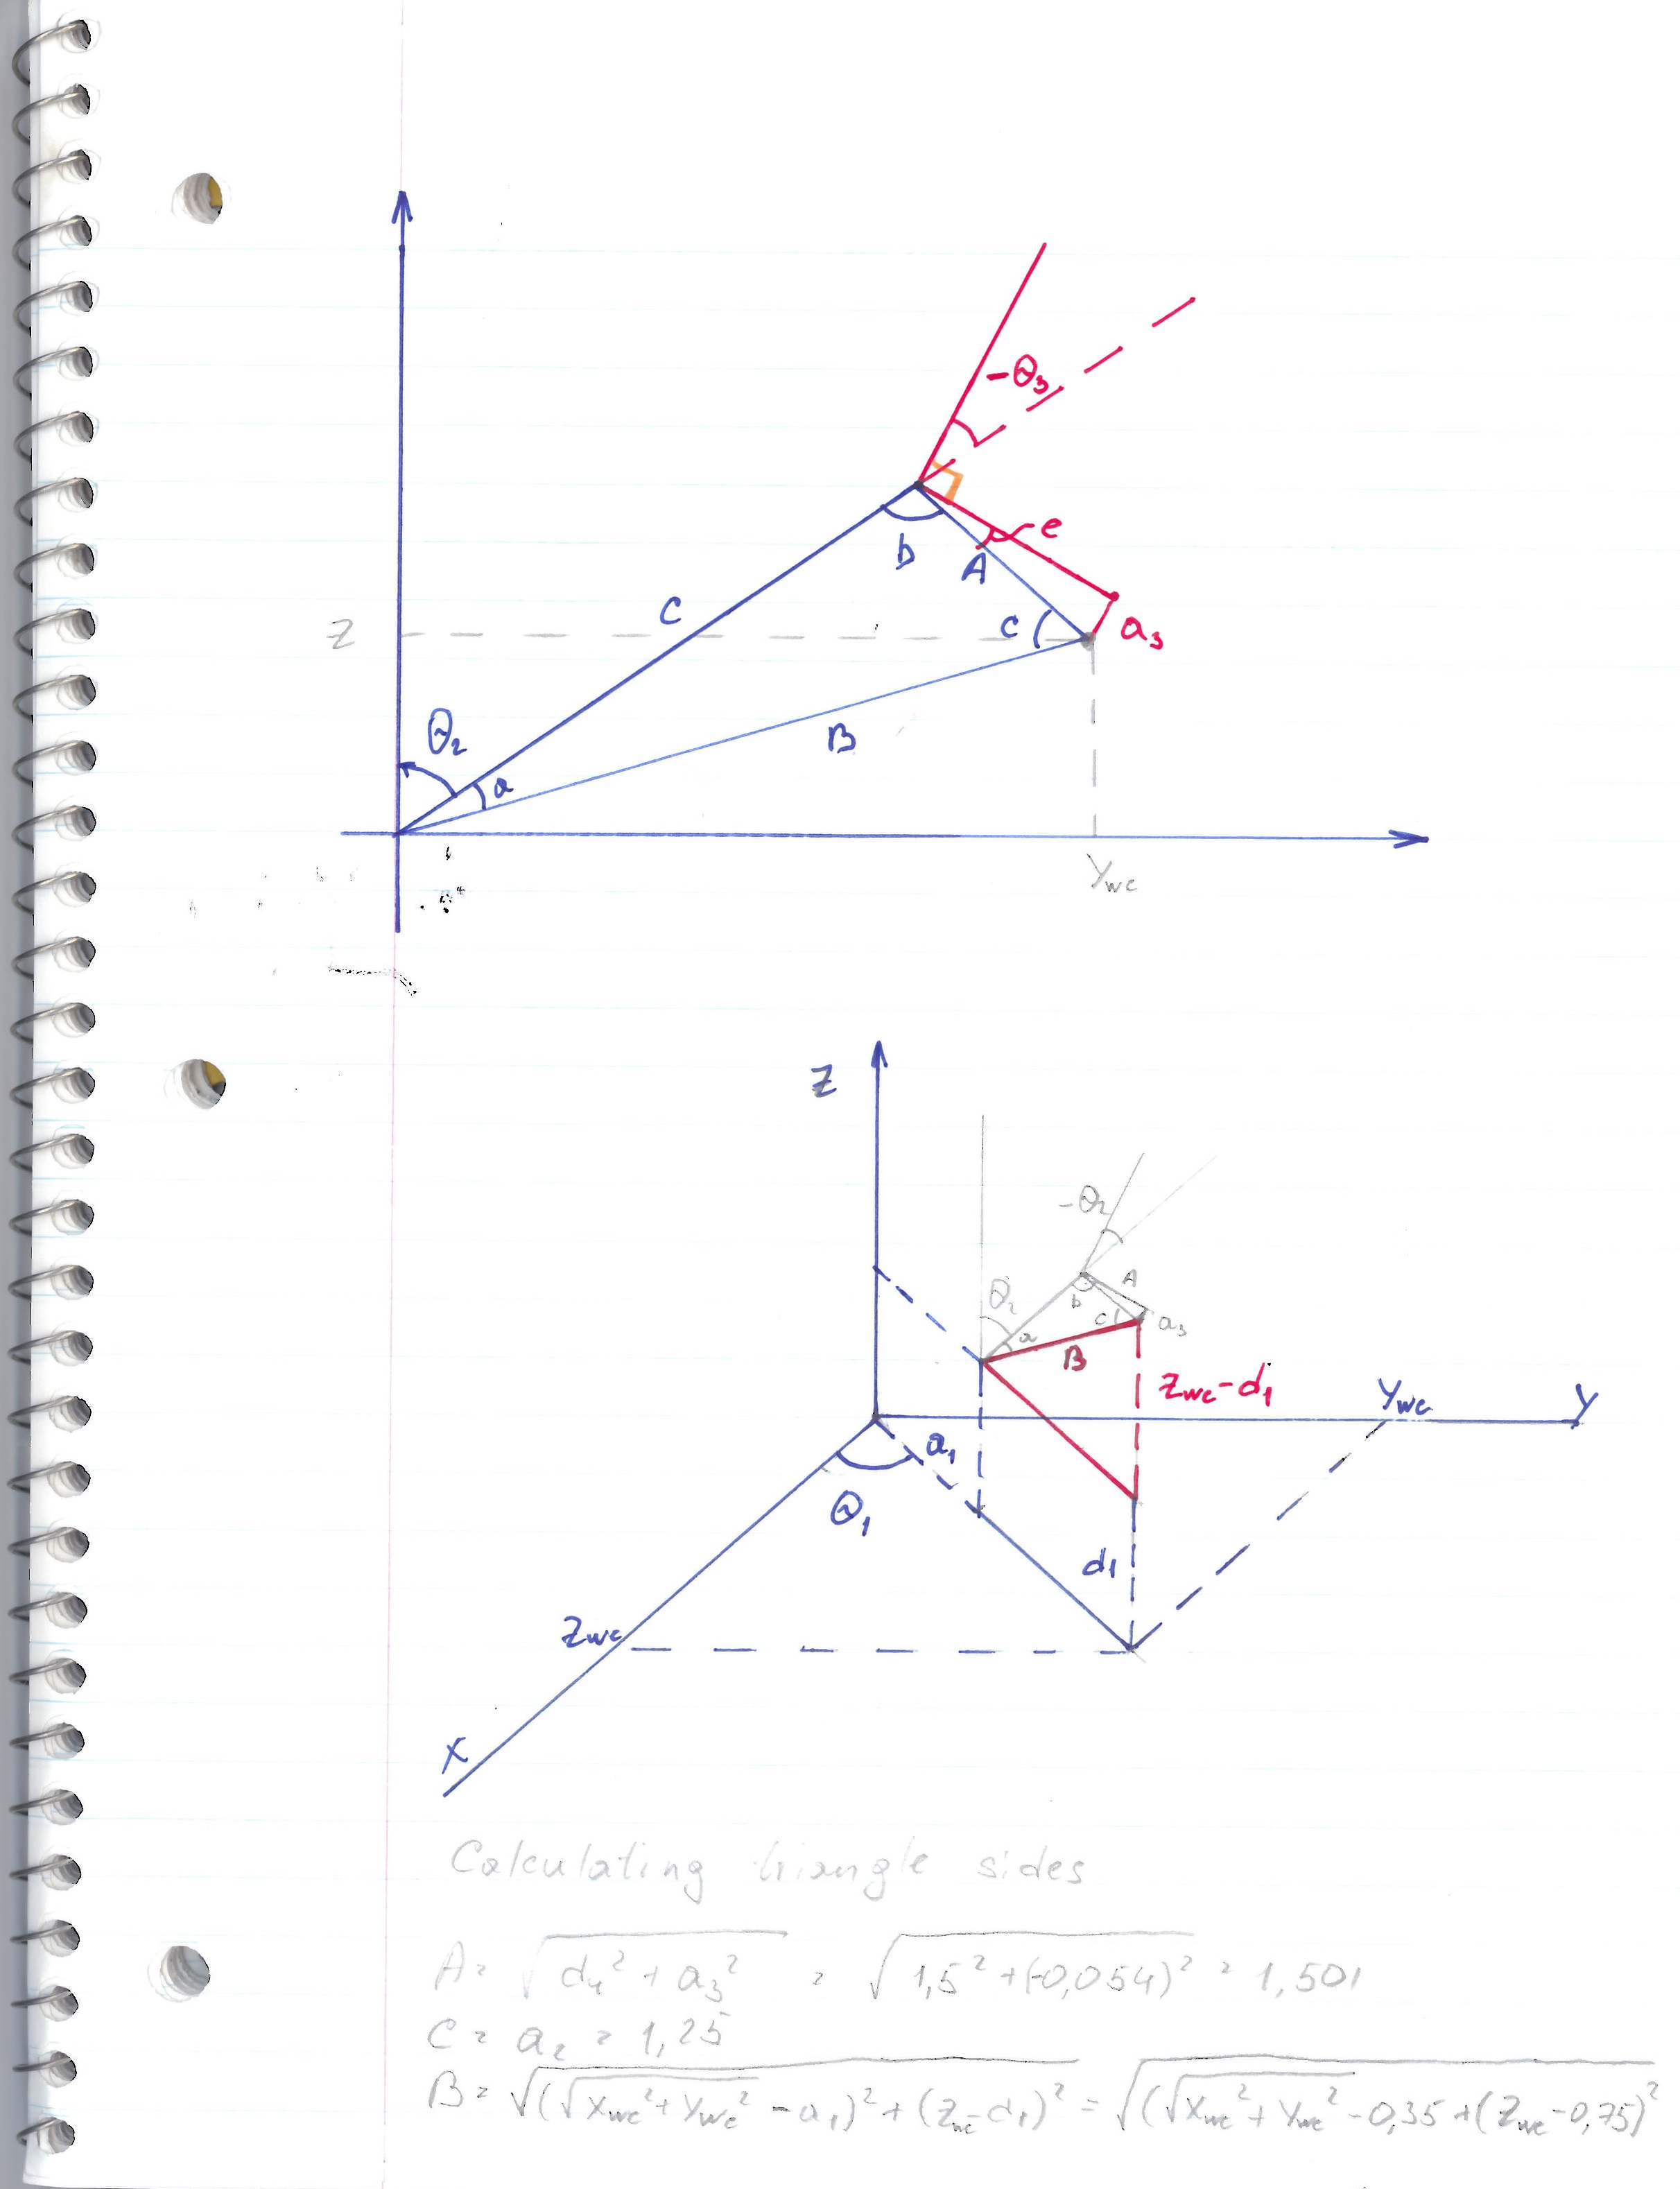 -θ₃
e
b
A
C
c
a₃
Z
B
θ₂
a
Ywc
Z
-θ₂
A
θ₂
b
c
a₃
a
B
Zwc-d₁
Ywc
Y
a₁
θ₁
d₁
Zwc
X
Calculating triangle sides
A = √(d₄² + a₃²) = √(1,5² + (-0,054)²) = 1,501
C = a₂ = 1,25
B = √((√(Xwc² + Ywc²) - a₁)² + (Zwc - d₁)²) = √((√(Xwc² + Ywc²) - 0,35 + (Zwc - 0,75)²